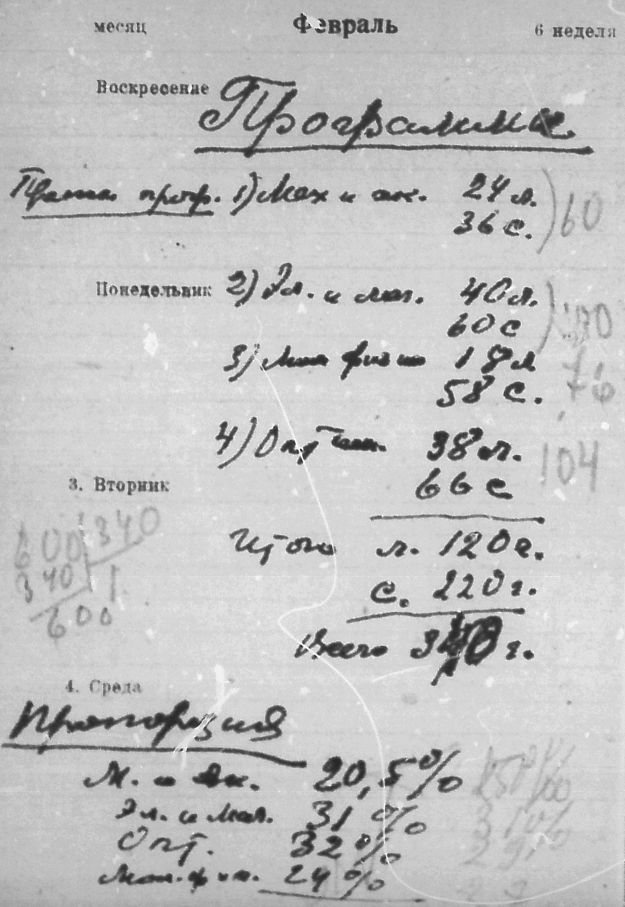 месяц Февраль 6 неделя
Воскресение
Программы
проф. 1) Мех и ак. 24 л. 60
36 с.
Понедельник 2) Эл. и маг. 40 л.
60 с
3) Мол физик 18 л 76
58 с.
4) Оптик. 38 л. 104
3. Вторник 66 с
600 340
Итого л. 120 г.
340 1
с. 220 г.
600
Всего 340 г.
4. Среда
Пропорция
М. и Ак. 20,5%
Эл. и Маг. 31%
Опт. 32%
Мол. физ. 24%